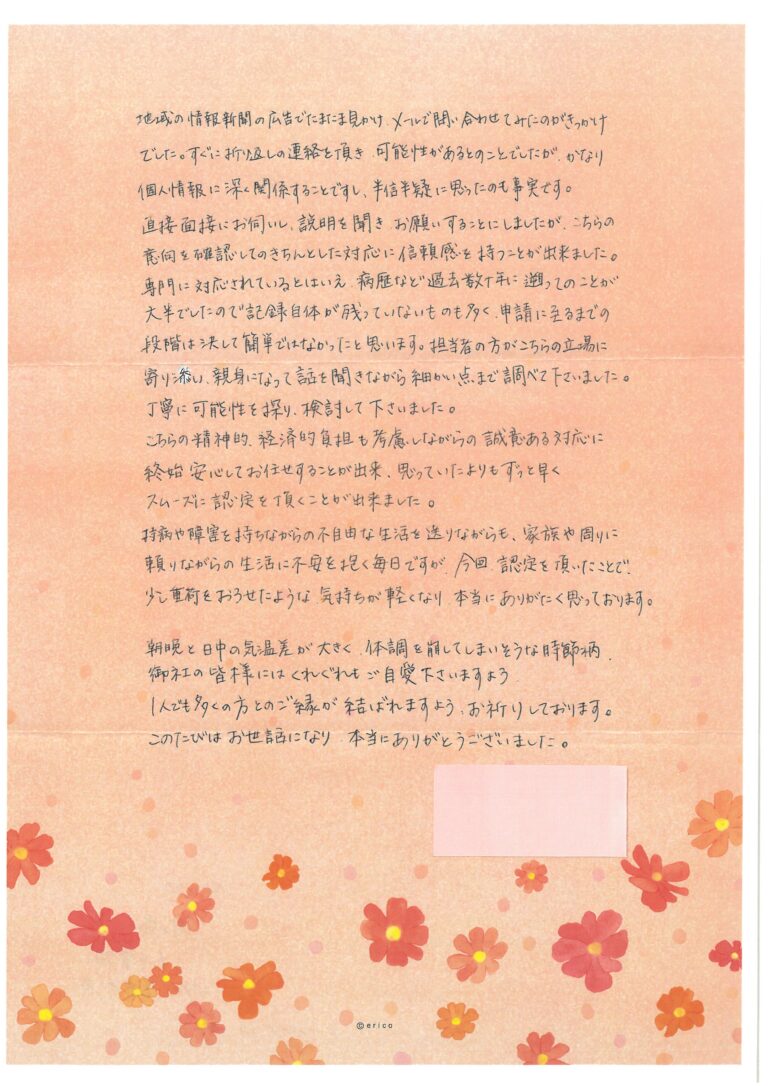 地域の情報新聞の広告でたまたま見かけ、メールで問い合わせてみたのがきっかけ
でした。すぐに折り返しの連絡を頂き、可能性があるとのことでしたが、かなり
個人情報に深く関係することですし、半信半疑に思ったのも事実です。
直接面接にお伺いし、説明を聞き、お願いすることにしましたが、こちらの
意向を確認してのきちんとした対応に信頼感を持つことが出来ました。
専門に対応されているとはいえ、病歴など過去数十年に遡ってのことが
大半でしたので記録自体が残っていないものも多く、申請に至るまでの
段階は決して簡単ではなかったと思います。担当者の方がこちらの立場に
寄り添い、親身になって話を聞きながら細かい点まで調べて下さいました。
丁寧に可能性を探り、検討して下さいました。
こちらの精神的、経済的負担も考慮しながらの誠意ある対応に
終始安心してお任せすることが出来、思っていたよりもずっと早く
スムーズに認定を頂くことが出来ました。
持病や障害を持ちながらの不自由な生活を送りながらも、家族や周りに
頼りながらの生活に不安を抱く毎日ですが、今回、認定を頂いたことで、
少し重荷をおろせたような気持ちが軽くなり、本当にありがたく思っております。
朝晩と日中の気温差が大きく、体調を崩してしまいそうな時節柄、
御社の皆様にはくれぐれもご自愛下さいますよう
1人でも多くの方とのご縁が結ばれますよう、お祈りしております。
このたびはお世話になり、本当にありがとうございました。
©erico